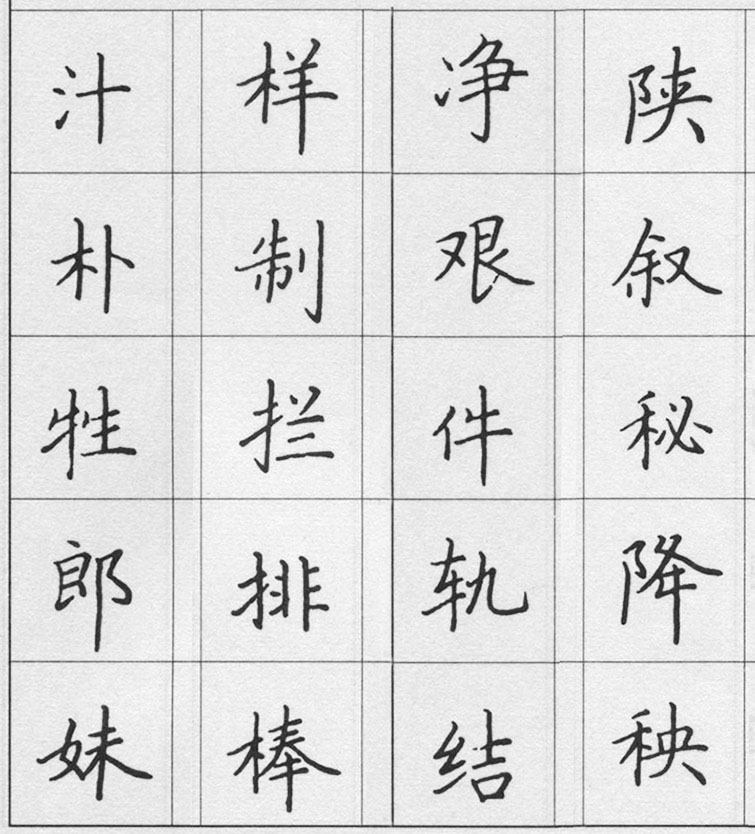 汁样净陕
朴制艰叙
牲拦件秘
郎排轨降
妹棒结秧